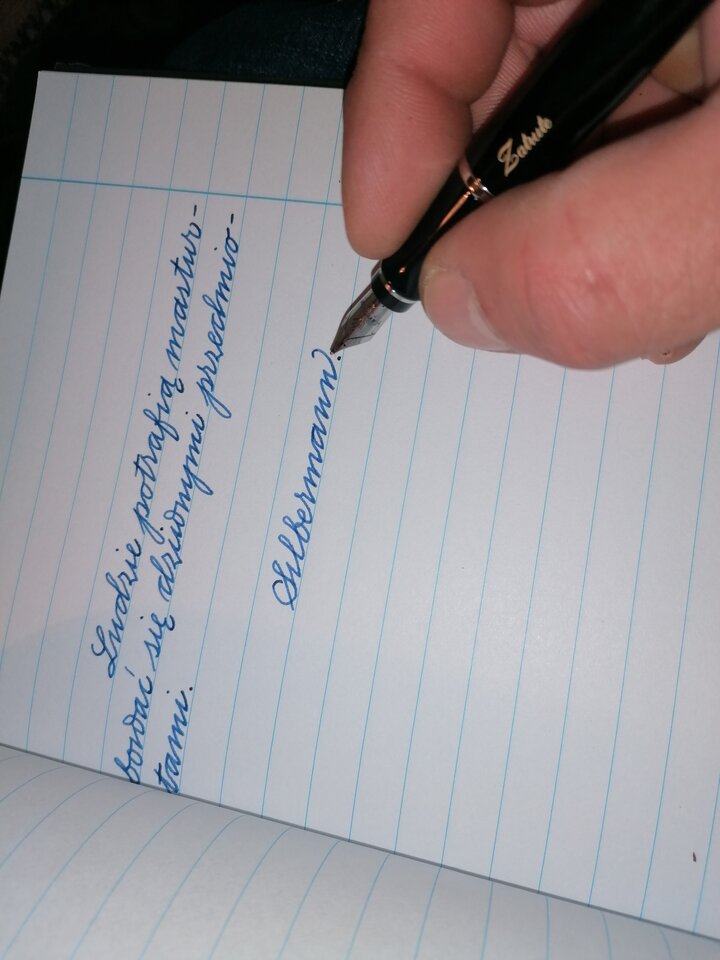 Ludzie potrafią mastur-
bować się dziwnymi przedmio-
tami.
Silbermann.